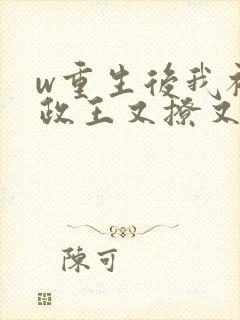 w重生後我
政王又撩又
陳可